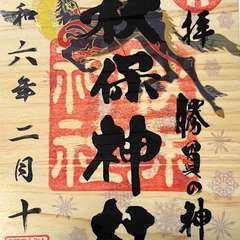 拝
勝負の神
秋保神社
和六年二月十